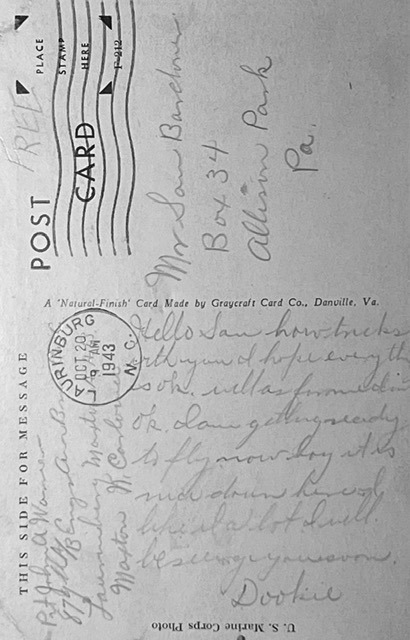 POST CARD
FREE
PLACE
STAMP
HERE
F-212
THIS SIDE FOR MESSAGE
Pvt John A Warner
Laurinburg Maxton
Maxton N. Carolina
LAURINBURG
OCT 20
9 AM
1943
N. C.
Hello Sam how tricks
with you I hope everyth
is ok. well as for me I'm
ok. I am getting ready
to fly now boy it is
nice down here
like it a lot I will
be seeing you soon.
Dookie
Mr Sam Bardner
Box 34
Allison Park
Pa.
A 'Natural-Finish' Card Made by Graycraft Card Co., Danville, Va.
U. S. Marine Corps Photo